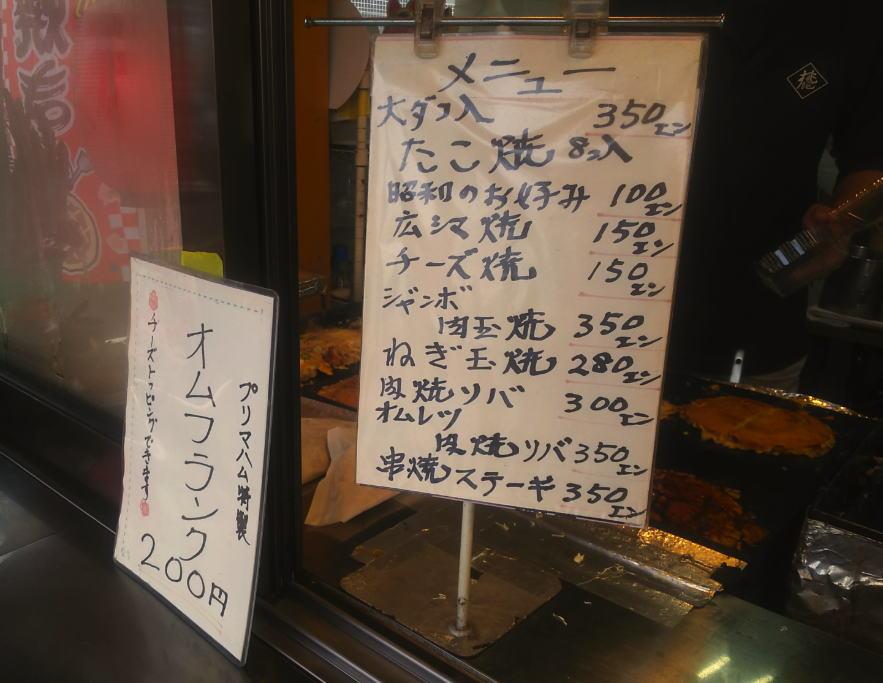 メニュー
大ダコ入 350エン
たこ焼 8コ入
昭和のお好み 100エン
広シマ焼 150エン
チーズ焼 150エン
ジャンボ
肉玉焼 350エン
ねぎ玉焼 280エン
肉焼ソバ 300エン
オムレツ
肉焼ソバ 350エン
串焼ステーキ 350エン
プリマハム特製
オムフランク
チーズトッピングできます
200円